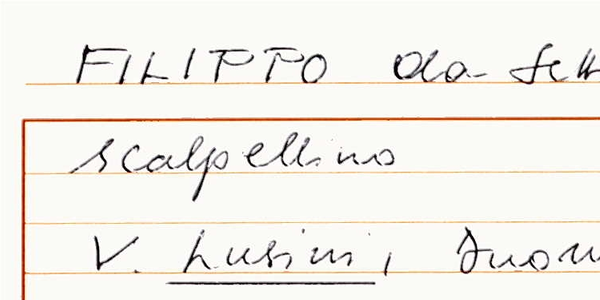 FILIPPO da Sett
scalpellino
V. Lusini, Duom